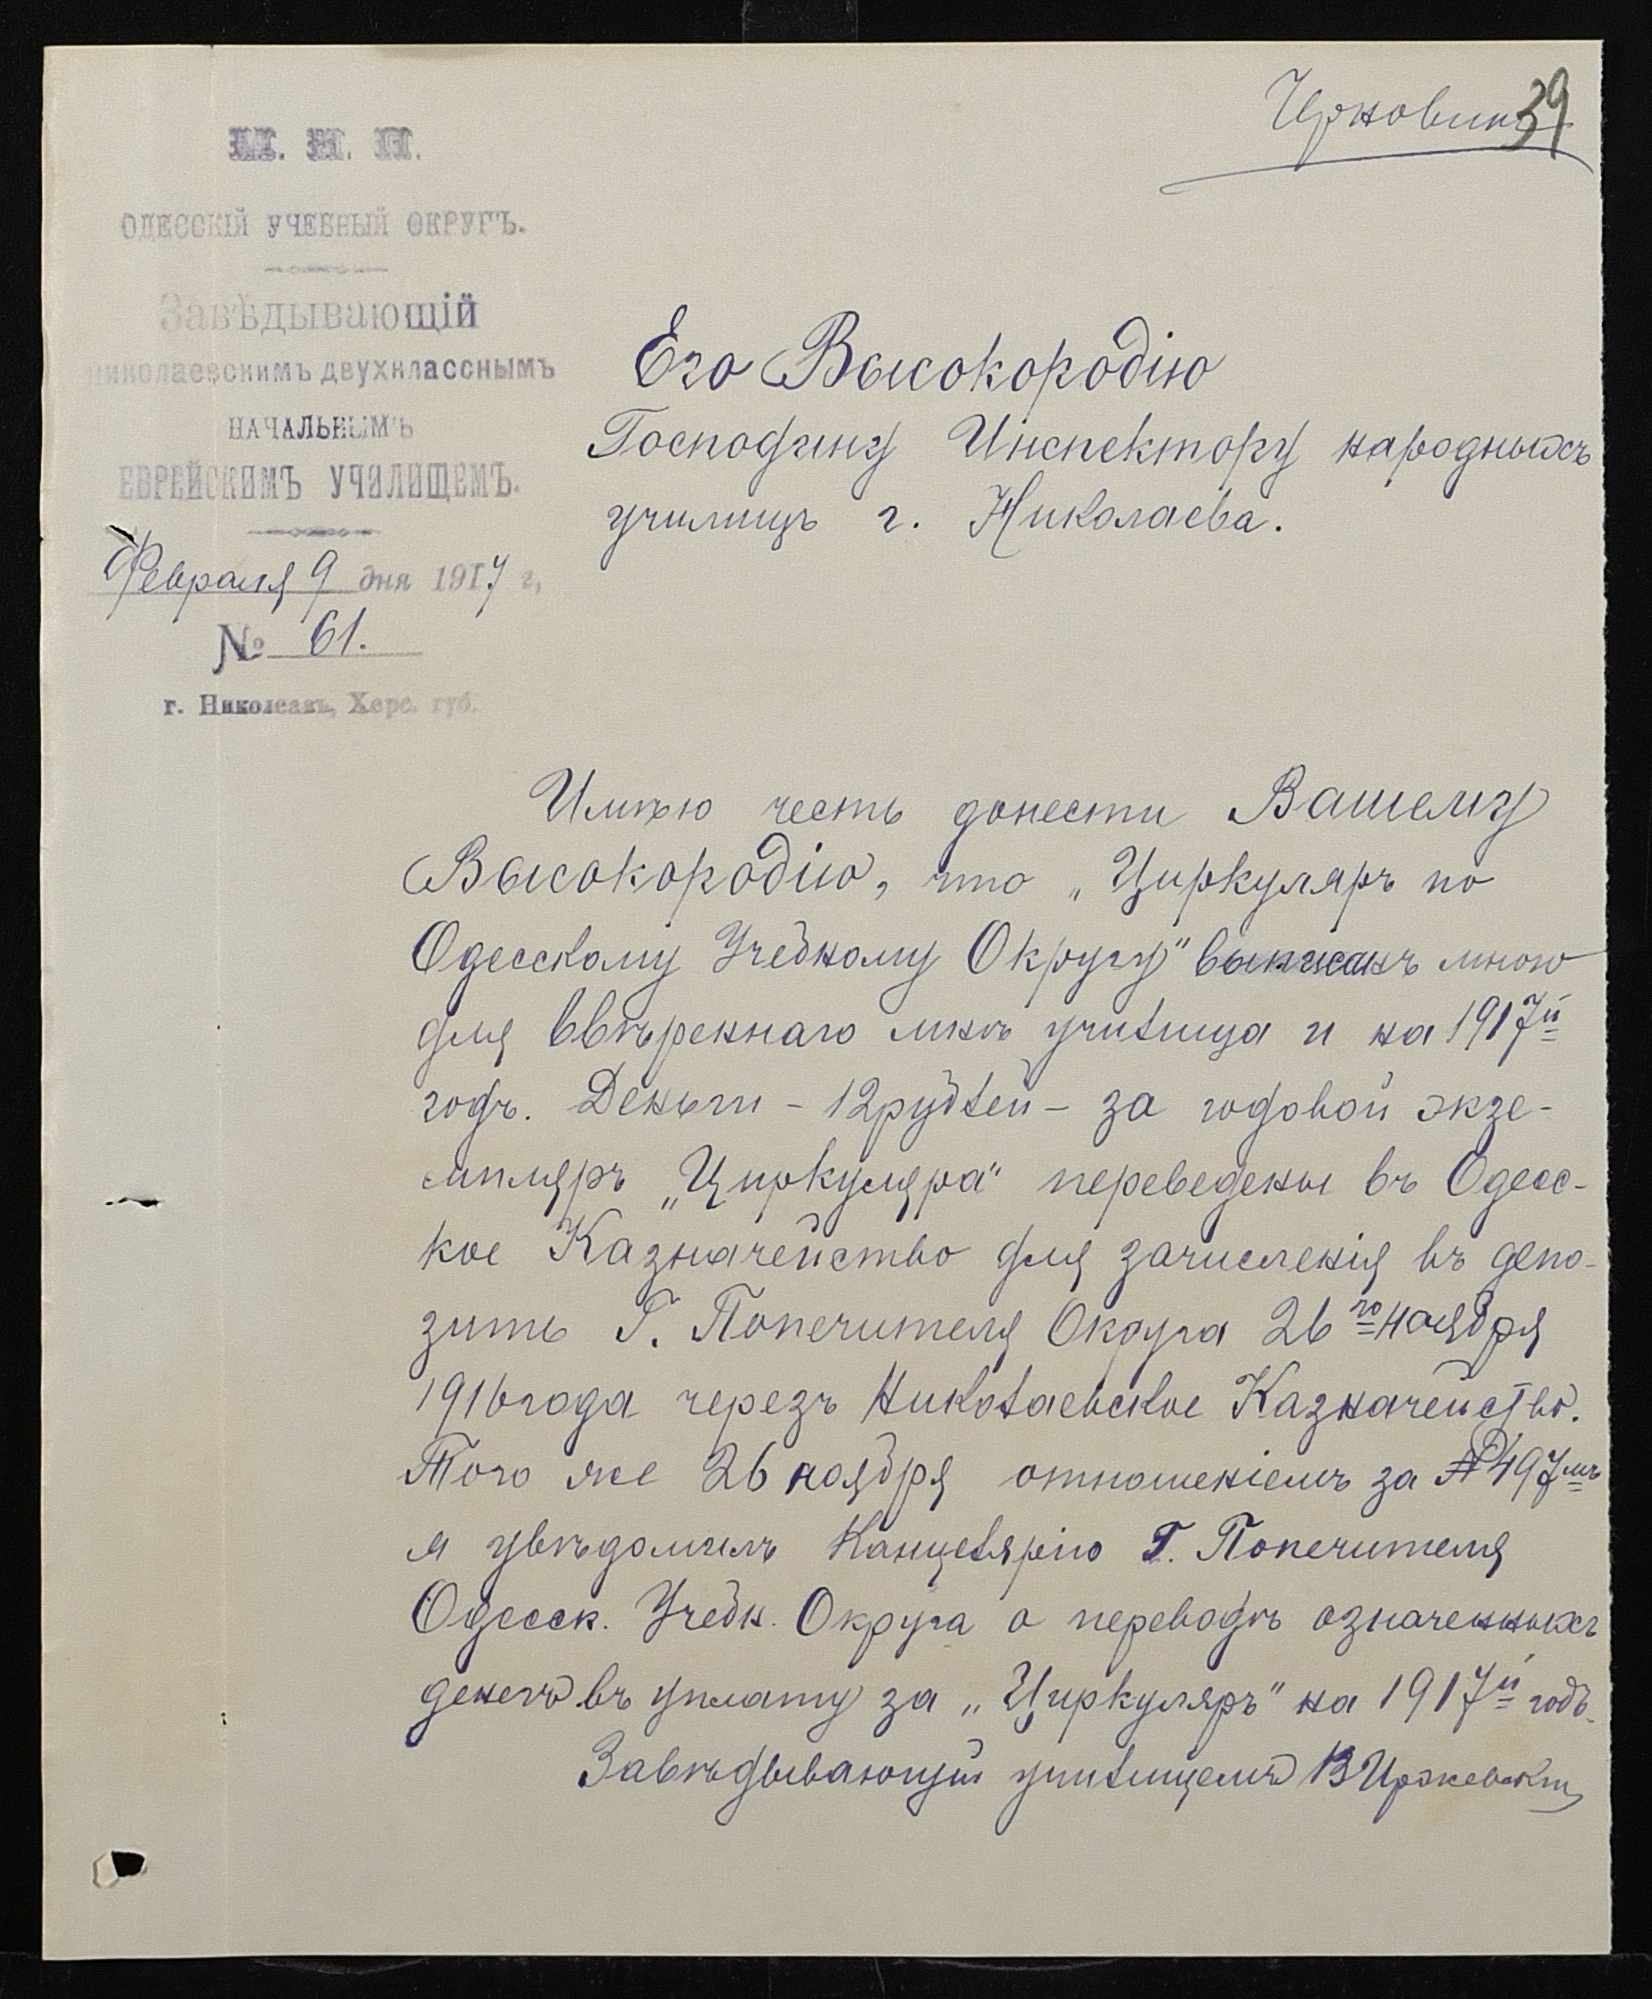 Черновикъ
39
М. Н. П.
ОДЕССКІЙ УЧЕБНЫЙ ОКРУГЪ.
Завѣдывающій
николаевскимъ двухкласснымъ
НАЧАЛЬНЫМЪ
ЕВРЕЙСКИМЪ УЧИЛИЩЕМЪ.
Февраля 9 дня 1917 г,
№ 61.
г. Николаевъ, Херс. губ.
Его Высокородію
Господину Инспектору народныхъ
училищъ г. Николаева.
Имѣю честь донести Вашему
Высокородію, что „Циркуляръ по
Одесскому Учебному Округу" выписанъ мною
для ввѣреннаго мнѣ училища и на 1917й
годъ. Деньги – 12 рублей – за годовой экзе-
мпляръ „Циркуляра" переведены въ Одесс-
кое Казначейство для зачисленія въ депо-
зиты Г. Попечителя Округа 26го ноября
1916 года черезъ Николаевское Казначейство.
Того же 26 ноября отношеніемъ за № 497мъ
я увѣдомилъ Канцелярію Г. Попечителя
Одесск. Учебн. Округа о переводѣ означенныхъ
денегъ въ уплату за „Циркуляръ" на 1917й годъ.
Завѣдывающій училищемъ В Иржевскій